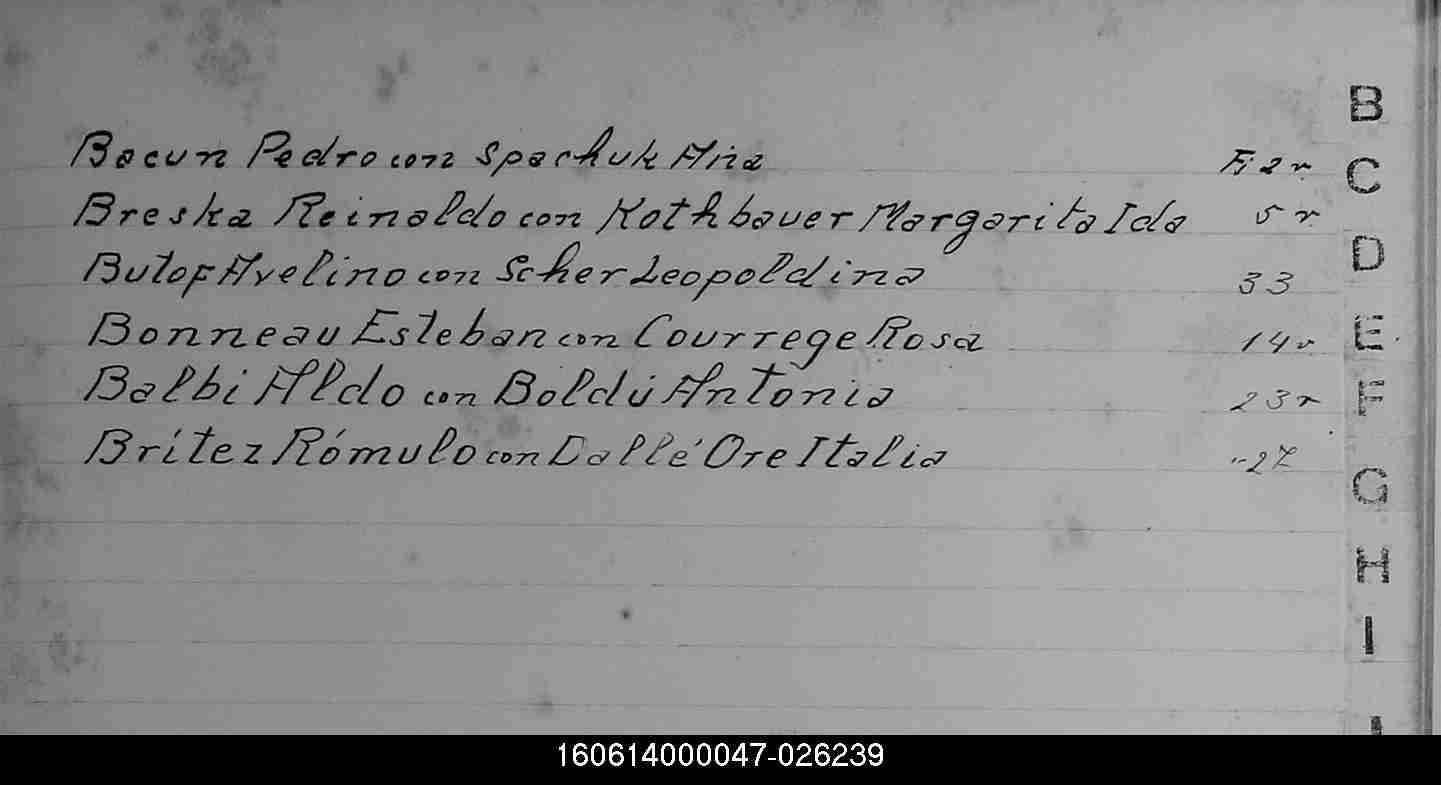 Bacun Pedro con Spachuk Ana F: 2 v
Breska Reinaldo con Kothbauer Margarita Ida 5 v
Butof Avelino con Scher Leopoldina 33
Bonneau Esteban con Courrege Rosa 14 v
Balbi Aldo con Boldú Antonia 23 v
Brítez Rómulo con Dallé Ore Italia " 27
B
C
D
E
F
G
H
I
160614000047-026239